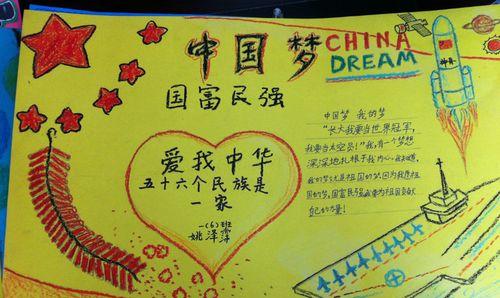 中国梦
CHINA
DREAM
国富民强
神舟
爱我中华
五十六个民族是
一家
一(6)班
姚泽
中国梦 我的梦
"长大我要当世界冠军,
我要当太空员!"我,有一个梦想
深深地扎根于我内心。我知道,
我的梦也是祖国的梦,因为我是祖
国的梦,国富民强我要为祖国贡献
自己的力量!